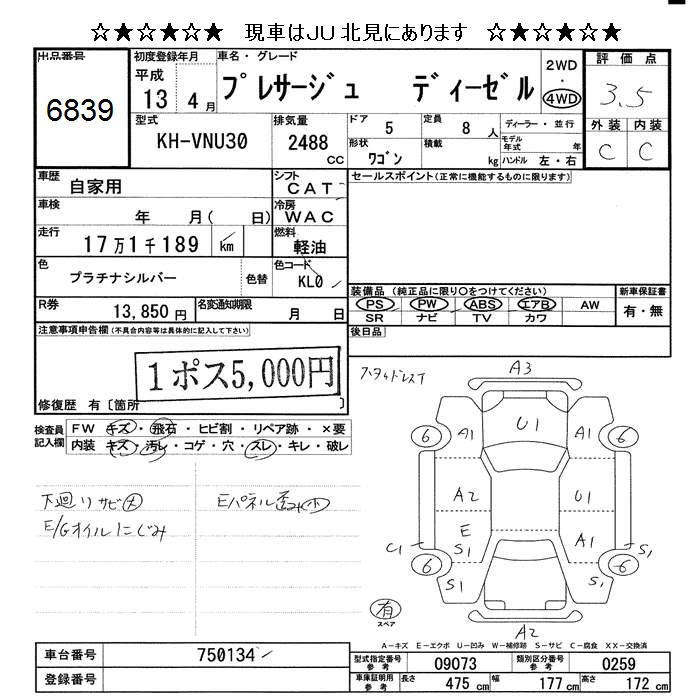 ☆★☆★☆★ 現車はJU北見にあります ☆★☆★☆★
出品番号
6839
初度登録年月
平成
13 4月
車名・グレード
プレサージュ ディーゼル
2WD
・
4WD
評価点
3.5
外装 内装
C C
型式
KH-VNU30
排気量
2488
CC
ドア
5
定員
8人
ディーラー・並行
形状
ワゴン
積載
kg
モデル年式 年
ハンドル 左・右
車歴
自家用
シフト
CAT
セールスポイント(正常に機能するものに限ります)
車検
年 月( 日)
冷房
WAC
走行
17万1千189 km
燃料
軽油
色
プラチナシルバー
色替
色コード
KL0
R券
13,850円
名変通知期限
月 日
装備品(純正品に限り○をつけてください)
PS PW ABS エアB AW
SR ナビ TV カワ
新車保証書
有・無
後日品
注意事項申告欄(不具合内容等は具体的に記入して下さい)
1ポス5,000円
修復歴 有〔箇所 〕
検査員記入欄
FW キズ・飛石・ヒビ割・リペア跡・×要
内装 キズ・汚レ・コゲ・穴・スレ・キレ・破レ
下廻りサビ大
E/Gオイルにじみ
Eパネル歪み小
A3
U1
6 A1 A1 6
A2 U1
E A1
C1 S1 S1
6 6
S1 S1
A2
有
スペア
A-キズ E-エクボ U-凹み W-補修跡 S-サビ C-腐食 XX-交換済
車台番号
750134
登録番号
型式指定番号
参考
09073
類別区分番号
参考
0259
車庫証明用
参考
長さ
475cm
幅
177cm
高さ
172cm